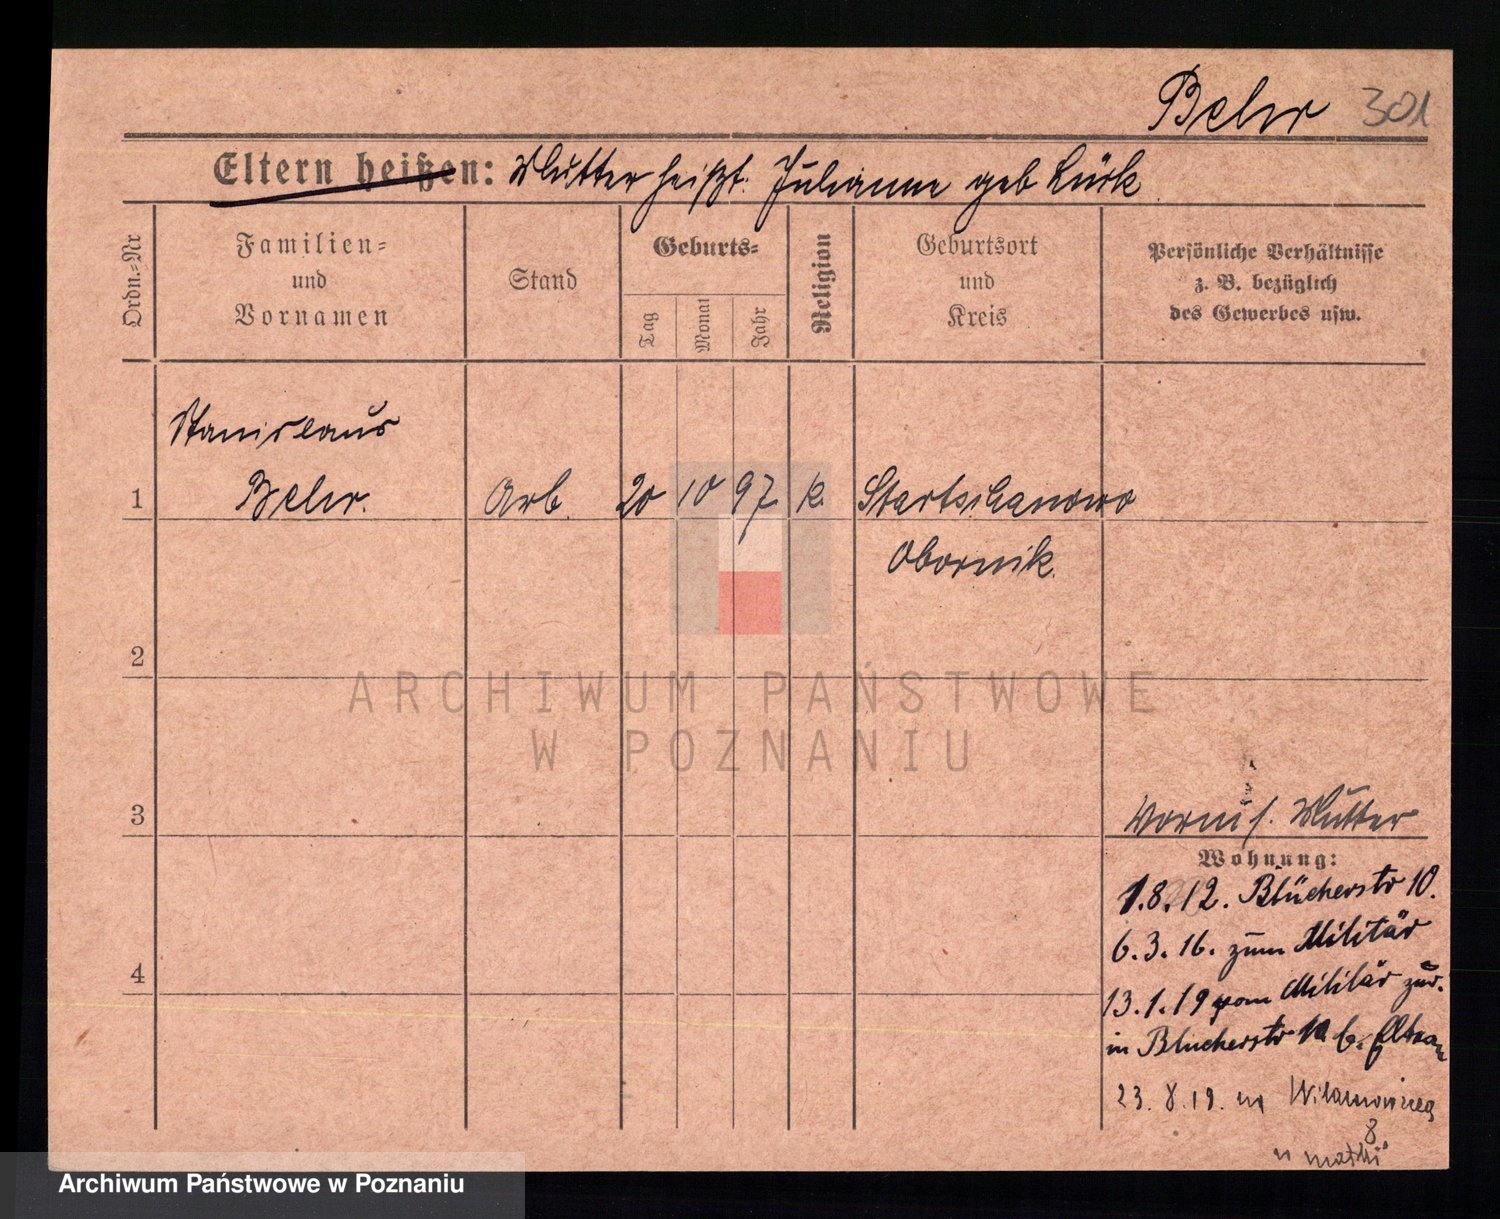 Behr 301
Eltern heißen: Mutter heißt: Julianne geb Lück
Ordn.=Nr
Familien=
und
Vornamen
Stand
Geburts=
Tag
Monat
Jahr
Religion
Geburtsort
und
Kreis
Persönliche Verhältnisse
z. B. bezüglich
des Gewerbes usw.
Stanislaus
1 Behr. Arb. 20 10 97 k.
Obornik.
2
ARCHIWUM PAŃSTWOWE
W POZNANIU
3
Mutter
Wohnung:
1.8.12. Blücherstr 10.
6.3.16. zum Militär
13.1.19 vom Militär zür.
in Blücherstr 10 b. Eltern
23.8.19. na
8
u matki
4
Archiwum Państwowe w Poznaniu